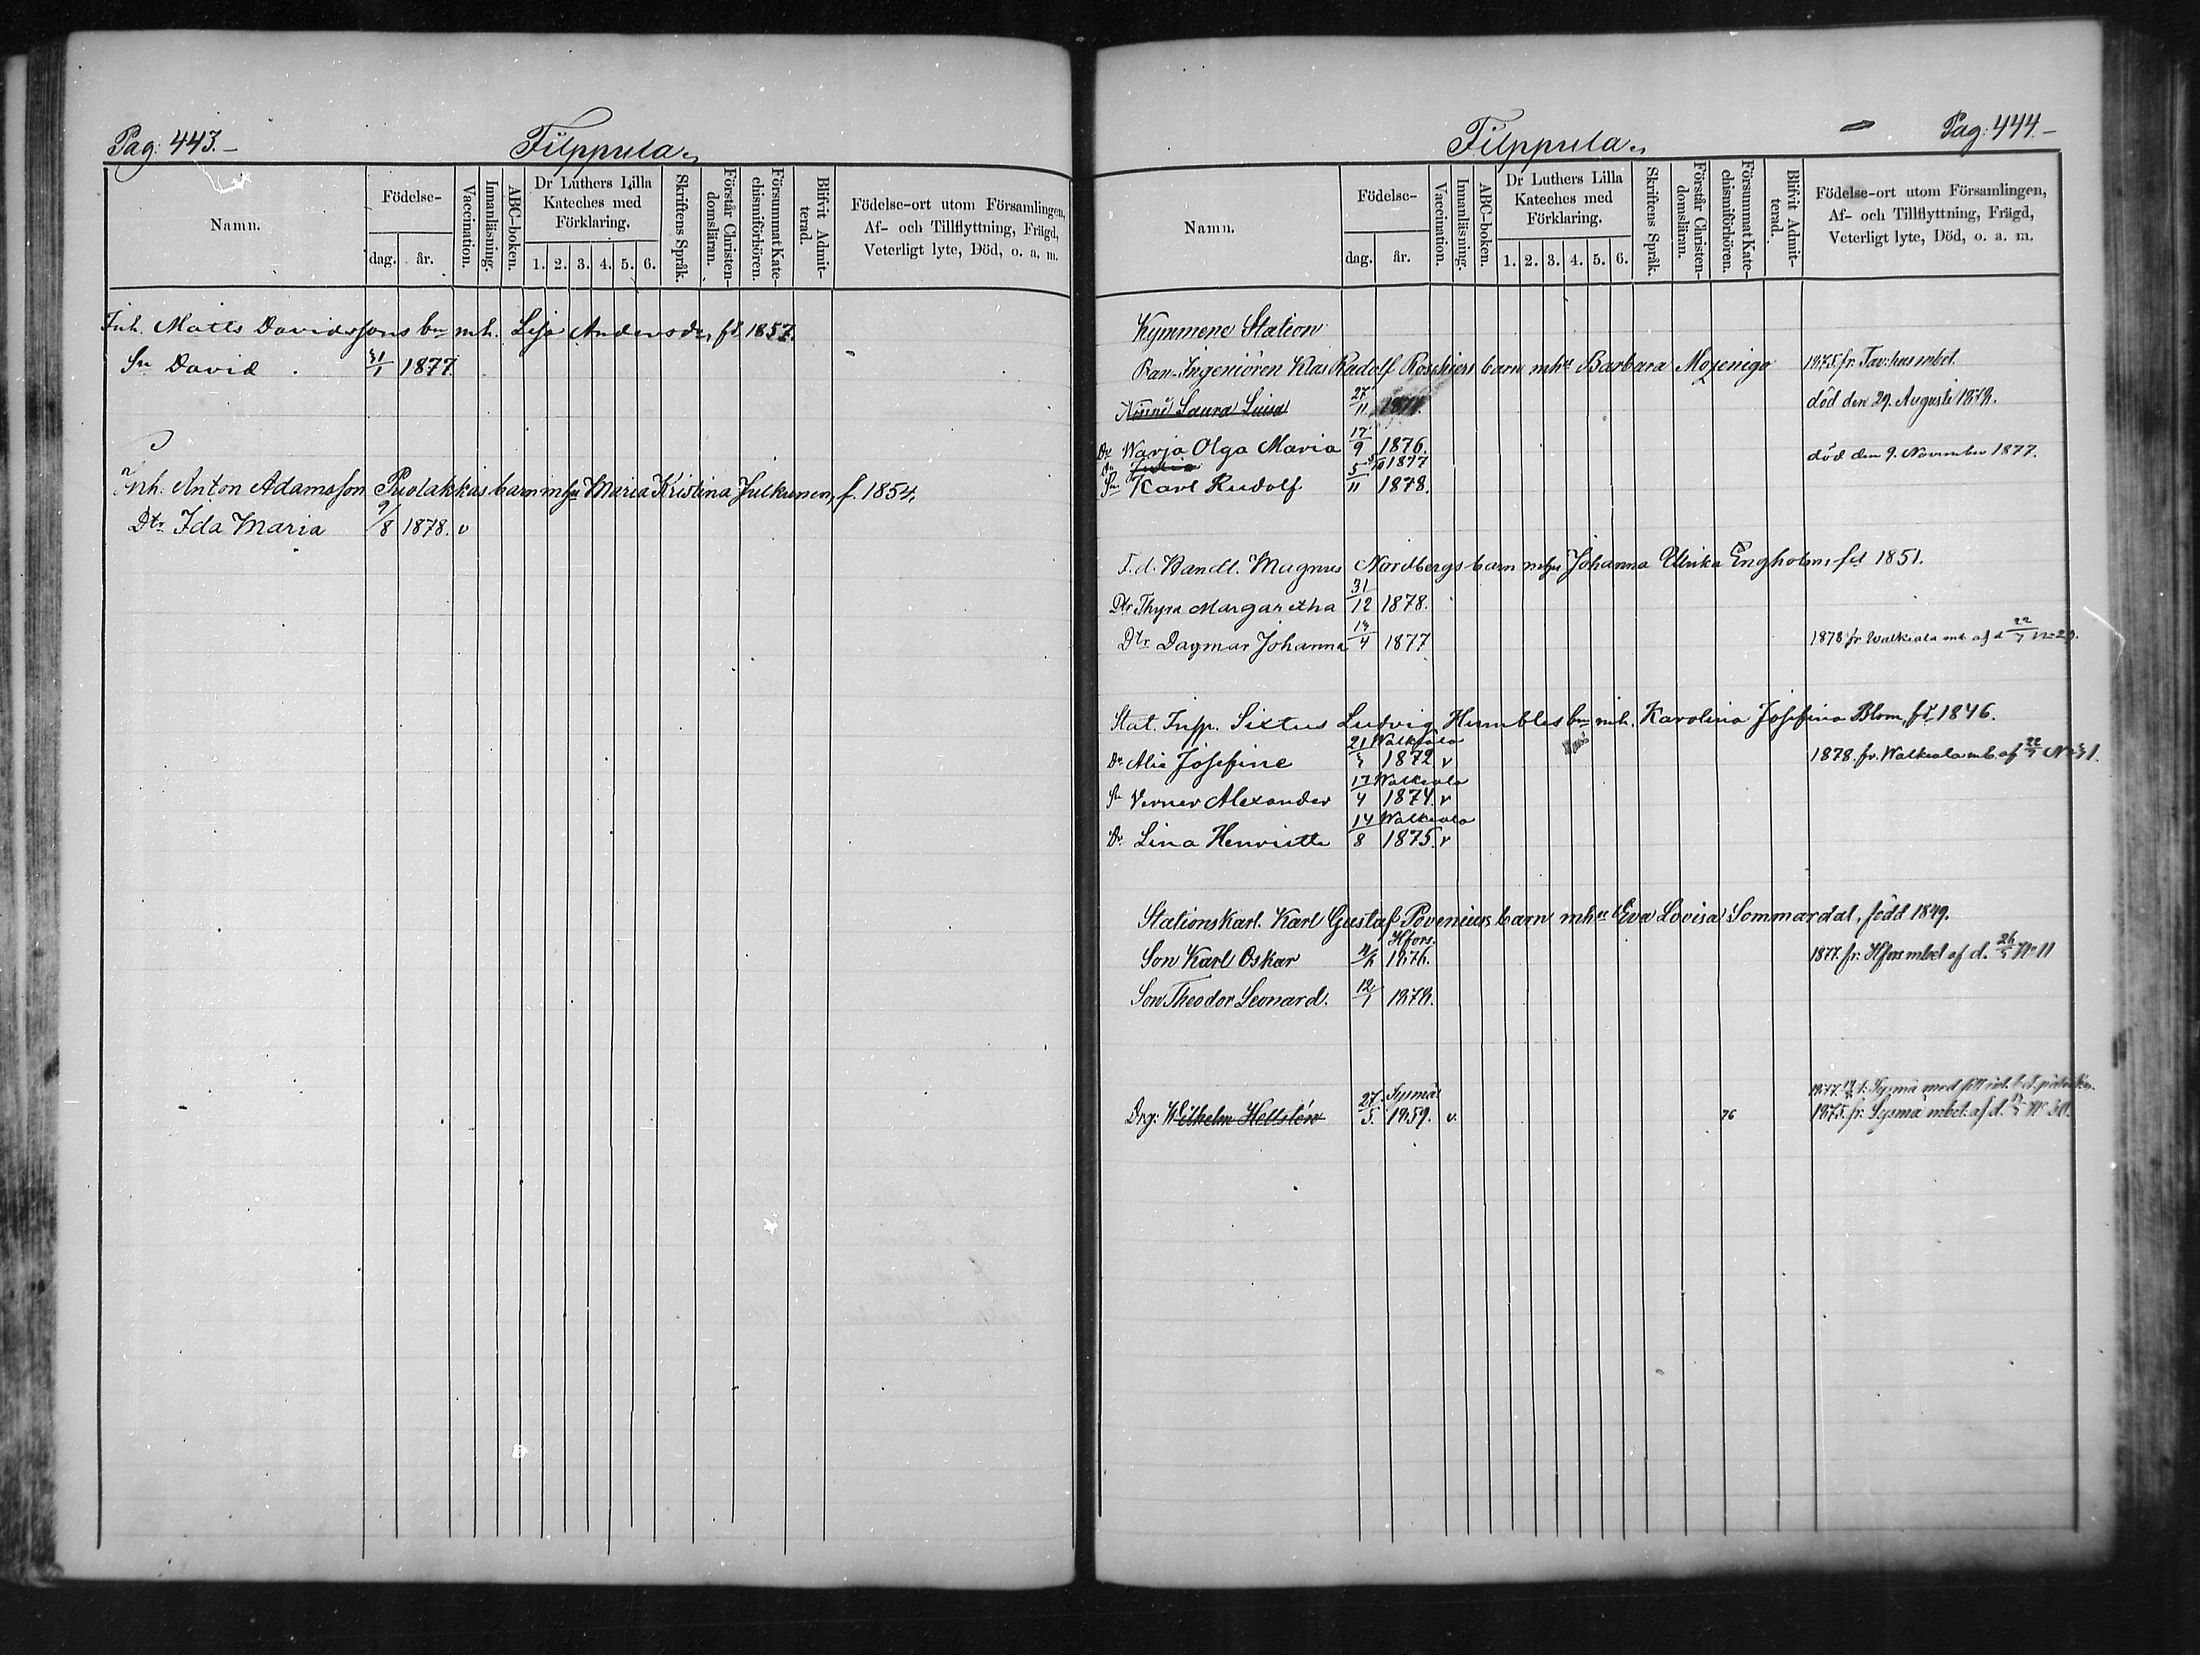 Pag: 443.
Filppula
Namn.
Födelse-
dag. år.
Vaccination.
Innanläsning.
ABC-boken.
Dr Luthers Lilla Kateches med Förklaring.
1. 2. 3. 4. 5. 6.
Skriftens Språk.
Förstår Christendomsläran.
Försummat Katechismiförhören.
Blifvit Admitterad.
Födelse-ort utom Församlingen,
Af- och Tillflyttning, Frägd,
Veterligt lyte, Död, o. a. m.
Inh. Matts Davidssons bn mh. Lisa Andersdr, fd. 1857.
Sn David 31/1 1877.
Inh. Anton Adamsson Puolakkas barn mhu Maria Kristina Julkunen, f. 1854.
Dtr Ida Maria 9/8 1878. v
Pag: 444.
Filppula
Namn.
Födelse-
dag. år.
Vaccination.
Innanläsning.
ABC-boken.
Dr Luthers Lilla Kateches med Förklaring.
1. 2. 3. 4. 5. 6.
Skriftens Språk.
Förstår Christendomsläran.
Försummat Katechismiförhören.
Blifvit Admitterad.
Födelse-ort utom Församlingen,
Af- och Tillflyttning, Frägd,
Veterligt lyte, Död, o. a. m.
Kymmene Station
Ban-Ingeniören Klas Rudolf barn mhu Barbara 1875. fr. Tav:hus mbet.
Laura 27/11 död den 29. Augusti 1878.
Dr Warja Olga Maria 17/9 1876.
Dr 1877 död den 9. November 1877.
Sn Karl Rudolf 5/11 1878.
T. d. Handl. Magnus Nordbergs barn mhu Johanna Ulrika Engholm, fd 1851.
Dtr Thyra Margaretha 31/12 1878.
Dtr Dagmar Johanna 13/4 1877 1878 fr Walkeala mb. af d 22/7 No 29.
Stat. Insp. Sixtus Ludvig Humbles bn mh. Karolina Josefina Blom, fd. 1846.
Walkeala
Dr Josefine 21/3 1872 v 1878. fr. Walkeala mb. af 22/7 No 31.
Walkeala
Sn Verner Alexander 17/4 1874. v
Walkeala
Dr Lina Henriette 14/8 1875. v
Stationskarl. Karl Gustaf Povenius barn mhu Eva Lovisa Sommardal, född 1849.
Hfors.
Son Karl Oskar 1876. 1877. fr. Hfors mbet af d. 26/5 No 11
Son Theodor Leonard. 12/1 1878.
Sysmä
Drg: Wilhelm Hellstén 27/5. 1859. v. 76 1875. fr. Sysmä mbet. af d.